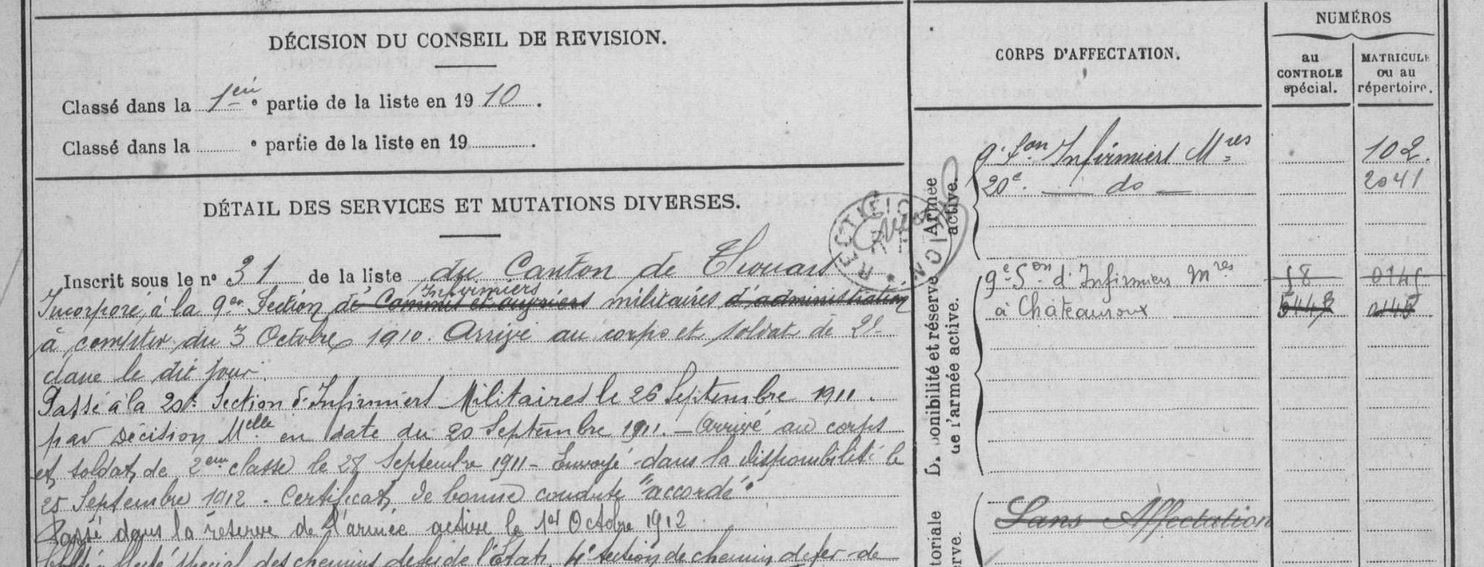 DÉCISION DU CONSEIL DE REVISION.
Classé dans la 1ère partie de la liste en 1910.
Classé dans la e partie de la liste en 19 .
DÉTAIL DES SERVICES ET MUTATIONS DIVERSES.
Inscrit sous le n° 31 de la liste du Canton de Thouars
Infirmiers
Incorporé à la 9e Section de Commis et ouvriers militaires d'administration
à compter du 3 Octobre 1910. Arrivé au corps et soldat de 2e
classe le dit jour
Passé à la 20e Section d'Infirmiers Militaires le 26 Septembre 1911.
par Décision Melle en date du 20 Septembre 1911. – Arrivé au corps
et soldat de 2eme classe le 28 Septembre 1911 – Envoyé dans la disponibilité le
25 Septembre 1912. Certificat de bonne conduite "accordé".
Passé dans la réserve de l'armée active le 1er Octobre 1912
spécial des chemins de fer de l'État, 4e section de chemin de fer de
CORPS D'AFFECTATION.
NUMÉROS
au CONTROLE spécial.
MATRICULE ou au répertoire.
Armée active.
9e Son Infirmiers Mres 102.
20e. — do — 2041
Disponibilité et réserve de l'armée active.
9e Son d'Infirmiers Mres 58 0145
à Châteauroux
Sans Affectation
RECTIFICATION